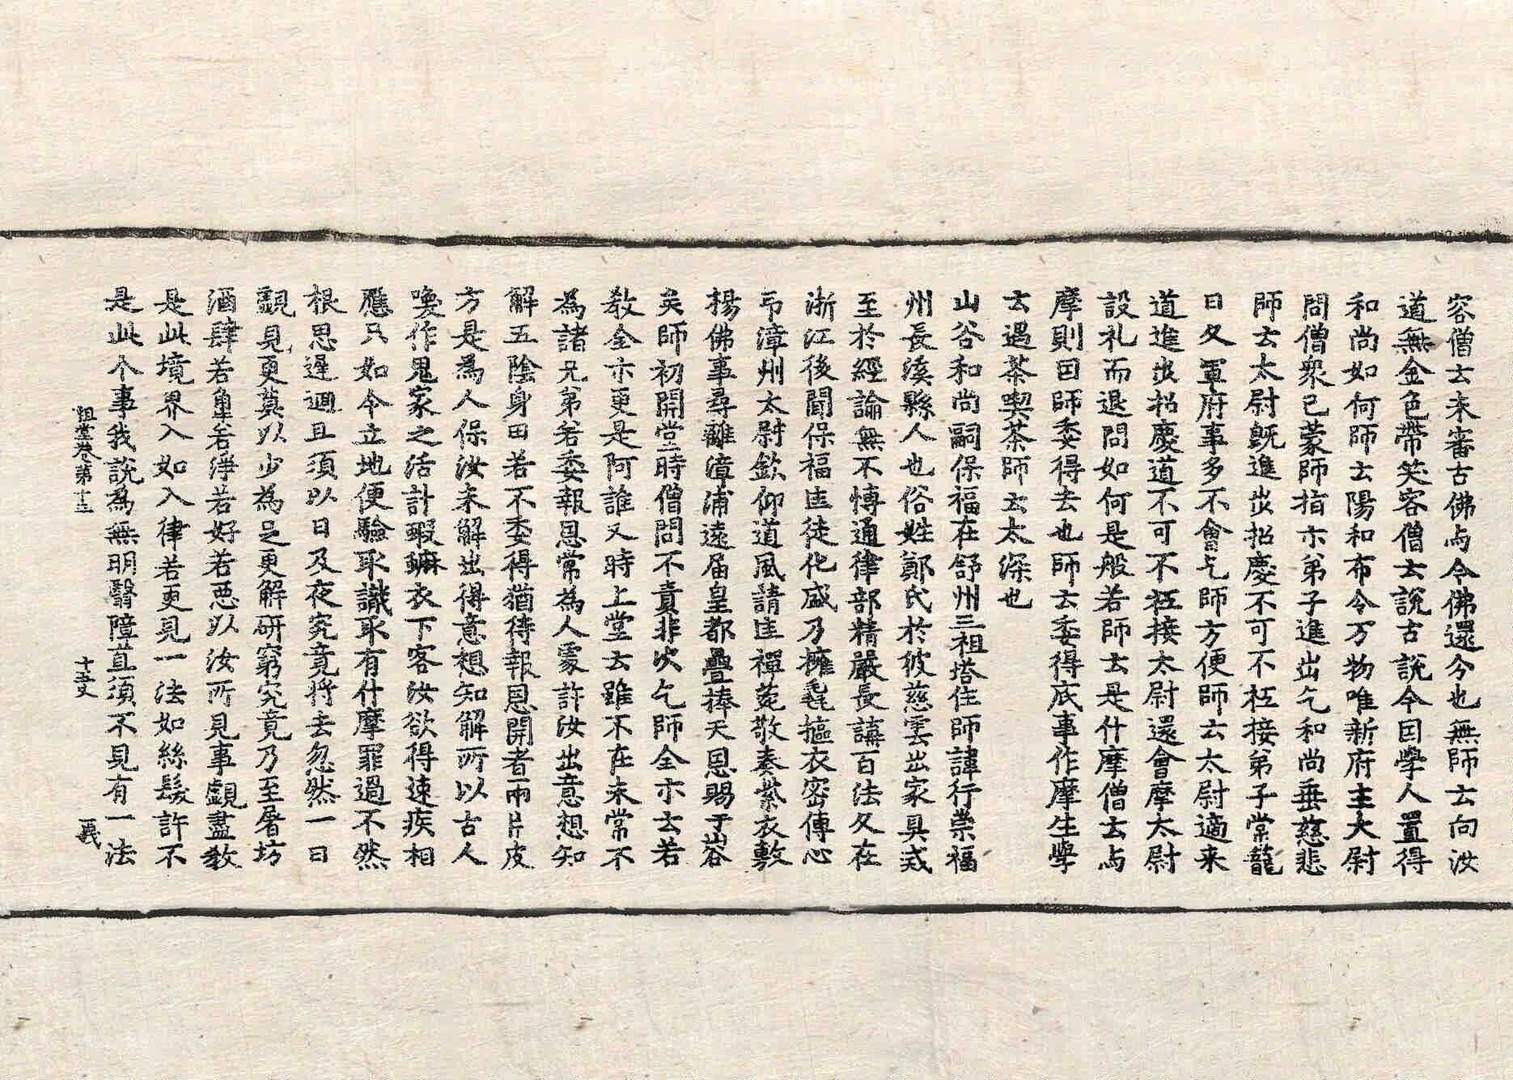 容僧云未審古佛与今佛還分也無師云向汝
道無金色帶笑容僧云說古說今囙學人置得
和尚如何師云陽和布令万物唯新府主大尉
問僧衆已蒙師指示弟子進出乞和尚垂慈悲
師云太尉旣進出招慶不可不枉接弟子常籠
日久軍府事多不會乞師方便師云太尉適來
道進出招慶道不可不枉接太尉還會摩太尉
設礼而退問如何是般若師云是什摩僧云与
摩則囙師委得去也師云委得底事作摩生學
云遇茶喫茶師云太深也
山谷和尚嗣保福在舒州三祖塔住師諱行崇福
州長溪縣人也俗姓鄭氏於彼慈雲出家具戒
至於經論無不愽通律部精嚴長講百法久在
浙江後聞保福匡徒化盛乃擁毳摳衣密傳心
帀漳州太尉欽仰道風請匡禪菀敬奏紫衣敷
揚佛事尋離漳浦遠届皇都疊捧天恩賜于山谷
矣師初開堂時僧問不責非次乞師全示云若
教全示更是阿誰又時上堂云雖不在未常不
為諸兄弟若委報恩常為人䖏許汝出意想知
解五陰身田若不委得猶待報恩開者兩片皮
方是為人保汝未解出得意想知解所以古人
喚作鬼家之活計蝦䗫衣下客汝欲得速疾相
應只如今立地便驗取識取有什摩罪過不然
根思遲迴且須以日及夜究竟將去忽然一日
覰見更莫以少為足更解研窮究竟乃至屠坊
酒肆若觕若淨若好若悪以汝所見事覰盡教
是此境界入如入律若更見一法如絲髮許不
是此个事我說為無明翳障直須不見有一法
祖堂卷第十三 十五丈 義